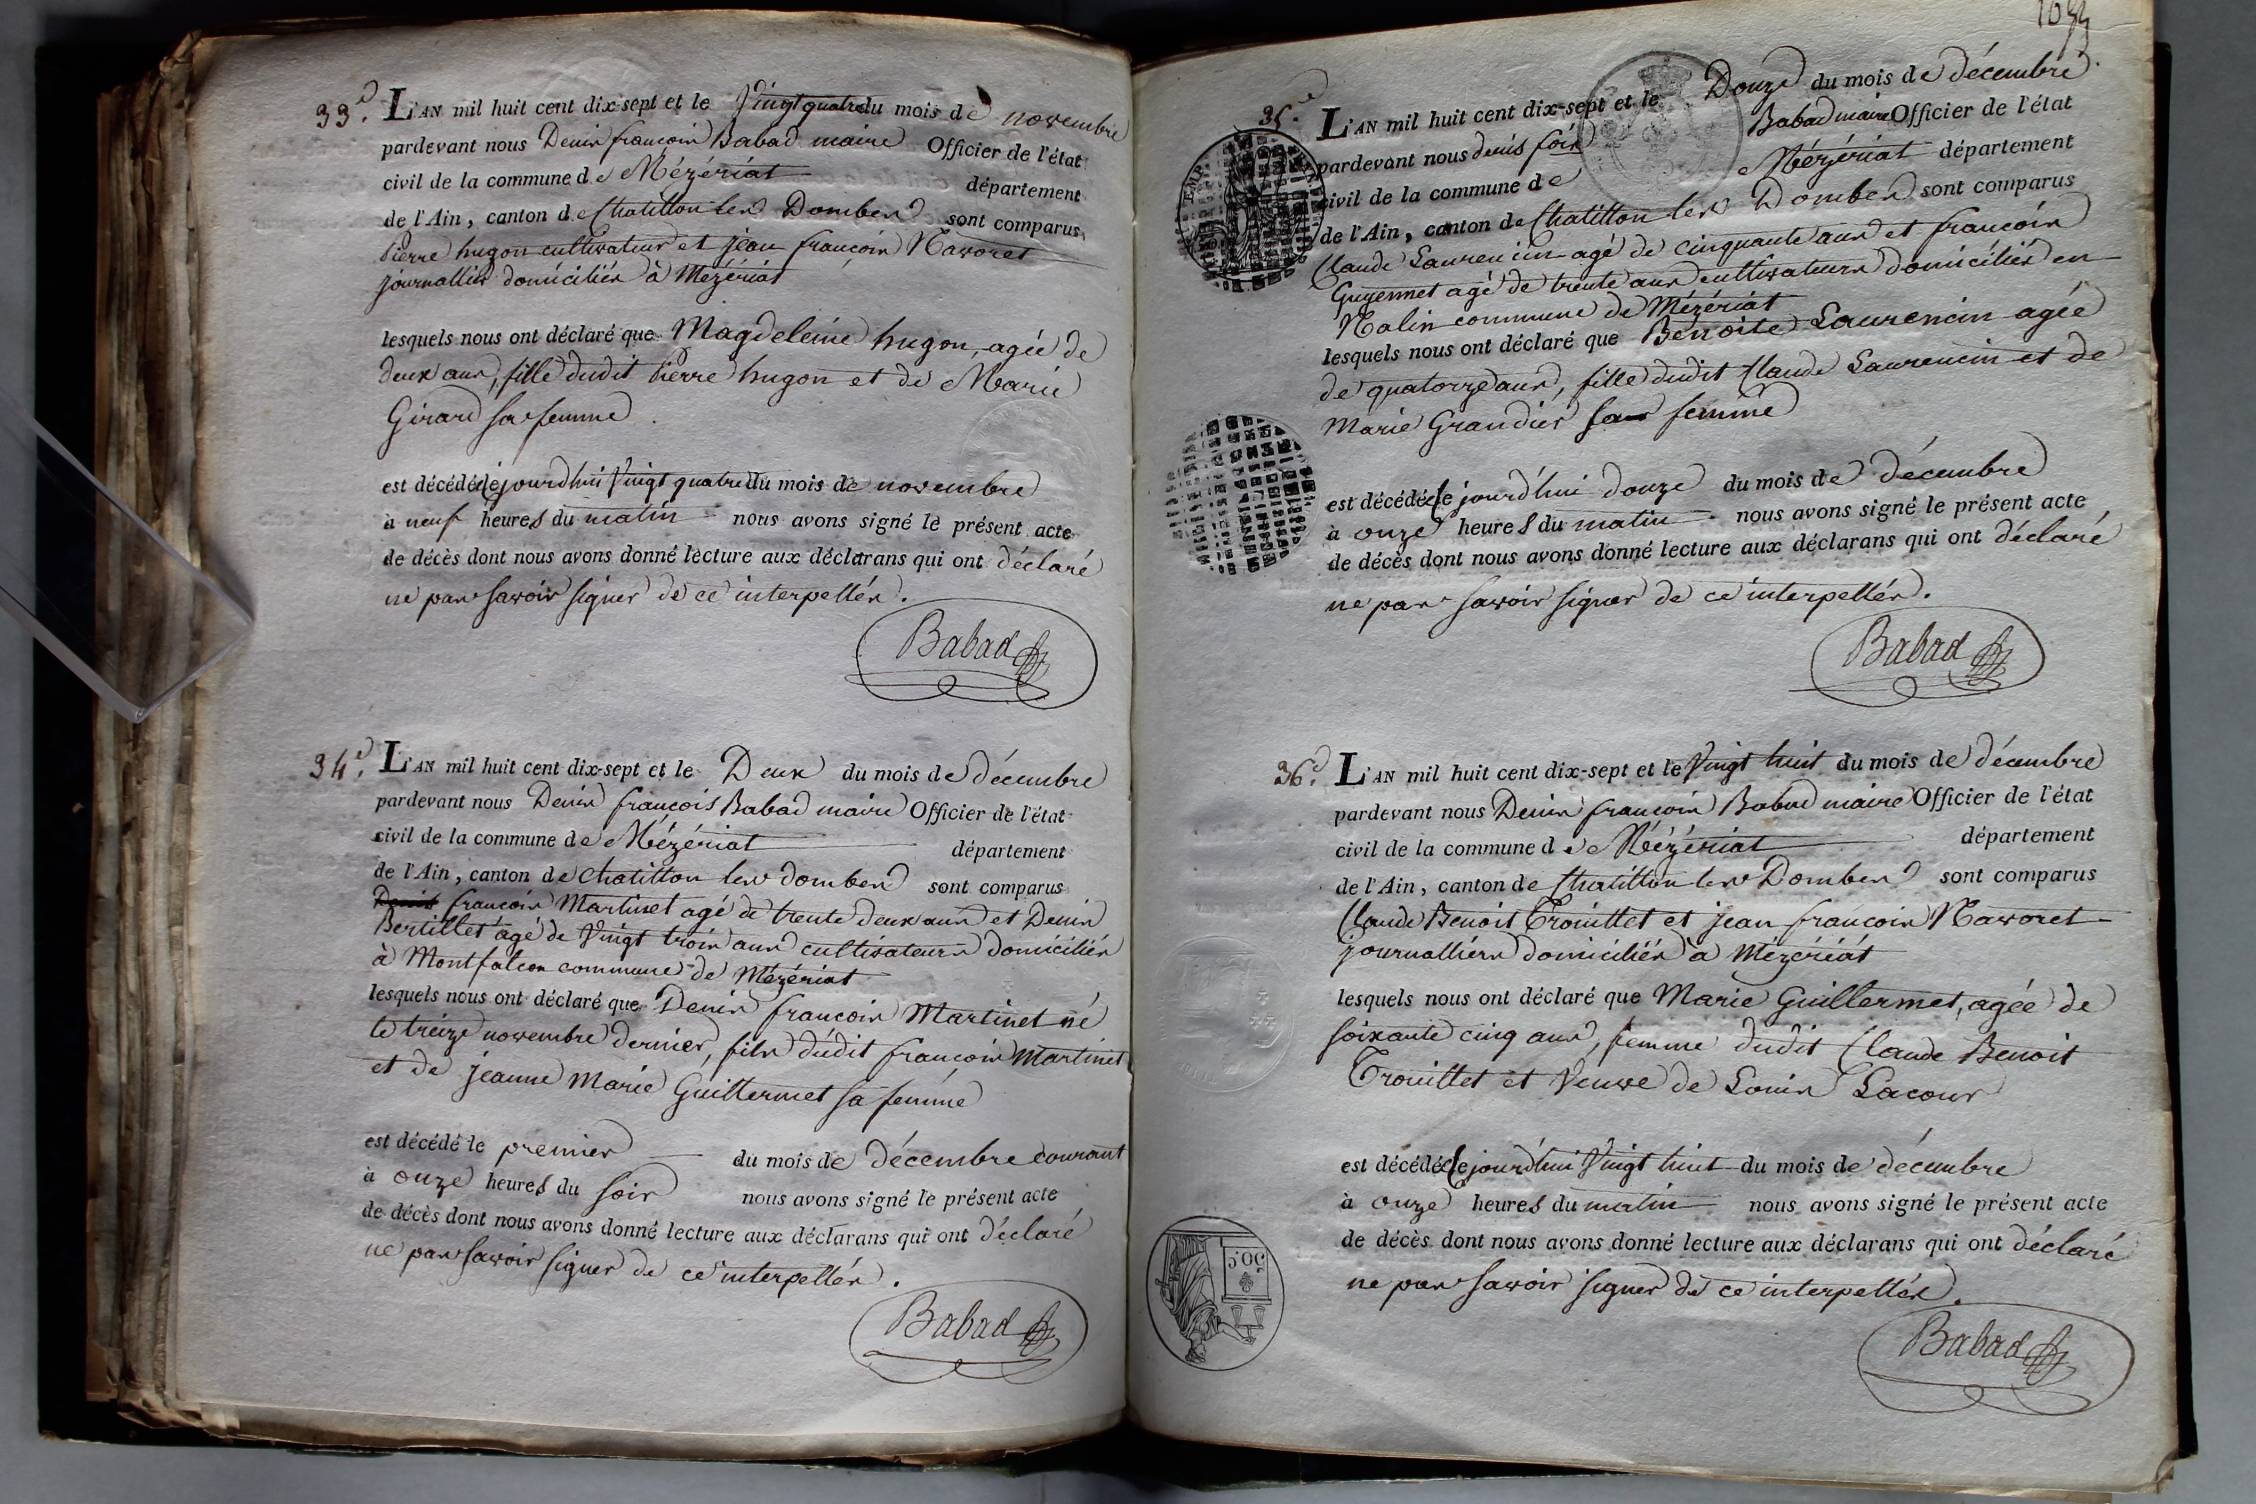 33.e L'AN mil huit cent dix-sept et le Vingt quatre du mois de novembre
pardevant nous Denis françois Babad maire Officier de l'état
civil de la commune de Mézériat département
de l'Ain, canton de Chatillon les Dombes sont comparus
Pierre hugon cultivateur et jean françois Navoret
journallier domiciliés à Mézériat
lesquels nous ont déclaré que Magdeleine hugon, agée de
deux ans, fille dudit Pierre hugon et de Marie
Girard sa femme.
est décédée Cejourdhui Vingt quatre du mois de novembre
à neuf heures du matin nous avons signé le présent acte
de décès dont nous avons donné lecture aux déclarans qui ont déclaré
ne pas savoir signer de ce interpellés.
Babad
34.e L'AN mil huit cent dix-sept et le Deux du mois de décembre
pardevant nous Denis françois Babad maire Officier de l'état
civil de la commune de Mézériat département
de l'Ain, canton de Chatillon les dombes sont comparus
Denis françois Martinet agé de trente deux ans et Denis
Bertillet agé de Vingt trois ans cultivateurs domiciliés
à Montfalcon commune de Mézériat
lesquels nous ont déclaré que Denis françois Martinet né
le treize novembre dernier, fils dudit françois Martinet
et de jeanne Marie Guillermet sa femme
est décédé le premier du mois de décembre courant
à onze heures du soir nous avons signé le présent acte
de décès dont nous avons donné lecture aux déclarans qui ont déclaré
ne pas savoir signer de ce interpellés.
Babad
35.e L'AN mil huit cent dix-sept et le Douze du mois de décembre
pardevant nous denis fois Babad maire Officier de l'état
civil de la commune de Mézériat département
de l'Ain, canton de Chatillon les Dombes sont comparus
Claude Laurencin agé de cinquante ans et françois
Guyennet agé de trente ans cultivateurs domiciliés en
Nalin commune de Mézériat
lesquels nous ont déclaré que Benoite Laurencin agée
de quatorze ans, fille dudit Claude Laurencin et de
Marie Grandier sa femme
est décédée Cejourd'hui douze du mois de décembre
à onze heures du matin nous avons signé le présent acte
de décès dont nous avons donné lecture aux déclarans qui ont déclaré
ne pas savoir signer de ce interpellés.
Babad
36.e L'AN mil huit cent dix-sept et le Vingt huit du mois de décembre
pardevant nous Denis françois Babad maire Officier de l'état
civil de la commune de Mézériat département
de l'Ain, canton de Chatillon les Dombes sont comparus
Claude Benoit Trouillet et jean françois Navoret
journalliers domiciliés à Mézériat
lesquels nous ont déclaré que Marie Guillermet, agée de
soixante cinq ans, femme dudit Claude Benoit
Trouillet et Veuve de Louis Lacour
est décédée Cejourd'hui Vingt huit du mois de décembre
à onze heures du matin nous avons signé le présent acte
de décès dont nous avons donné lecture aux déclarans qui ont déclaré
ne pas savoir signer de ce interpellés.
50 C
Babad